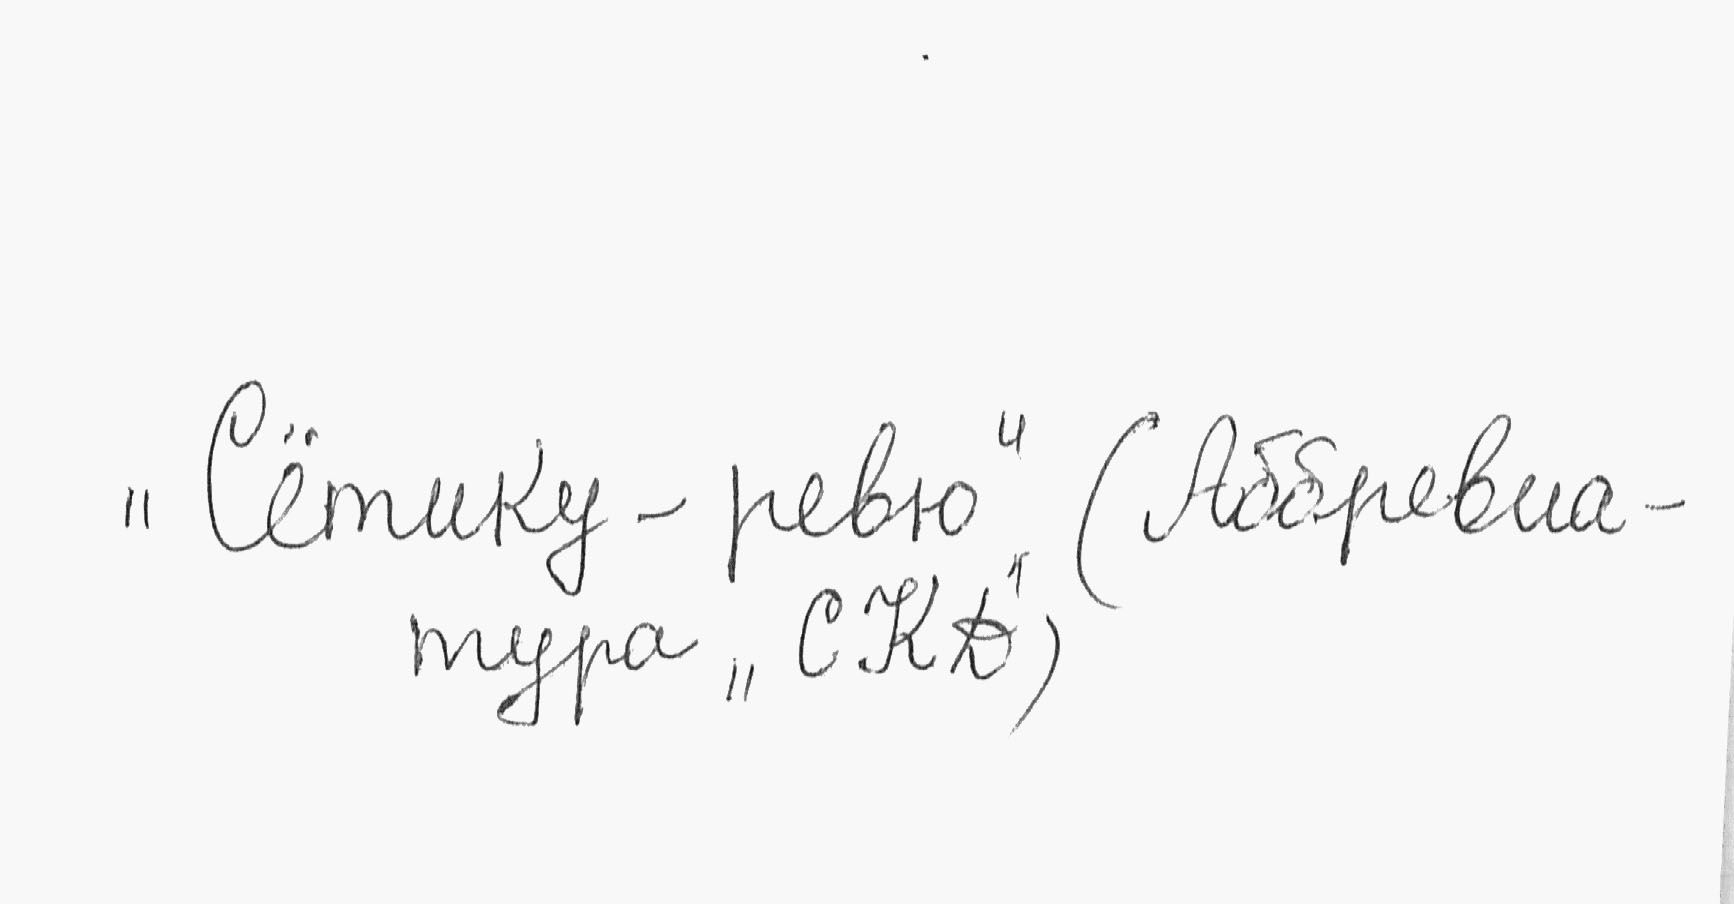 „Сётику-ревю“ (Аббревиа-
тура „СКД“)